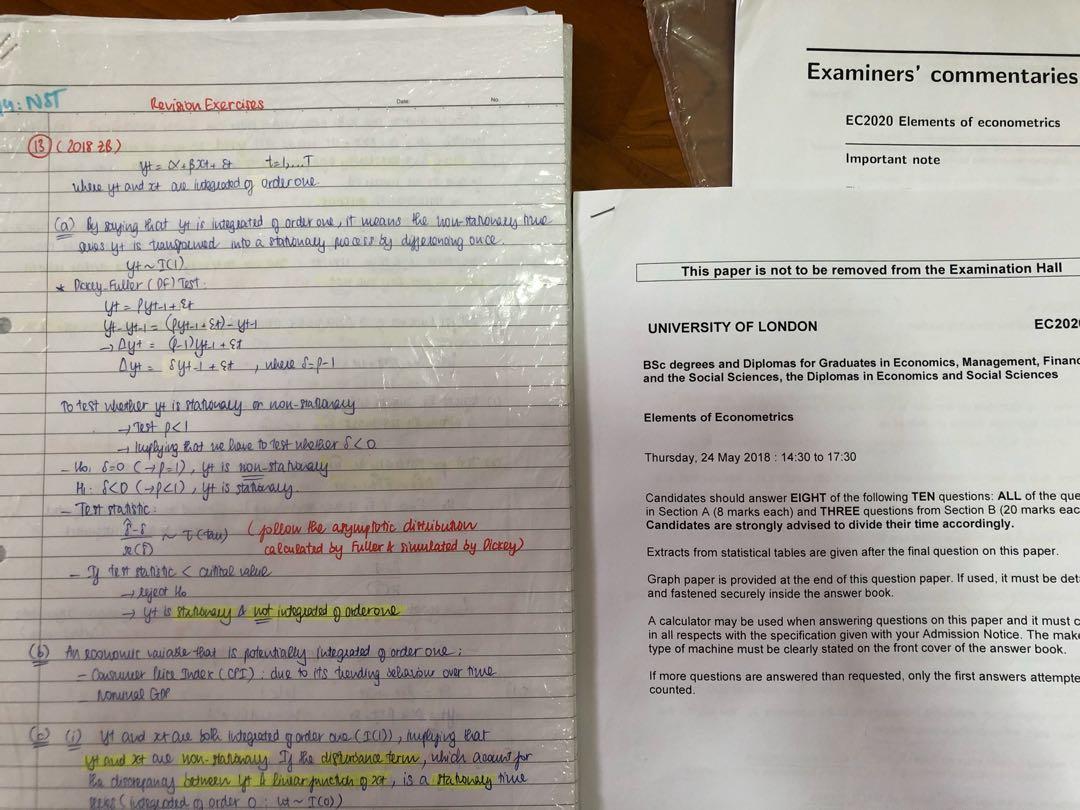 NST
Revision Exercises
Date:
No.
13 (2018 ZB)
yt = α + βxt + εt t=1,...T
where yt and xt are integrated of order one.
(a) By saying that yt is integrated of order one, it means the non-stationary time
series yt is transformed into a stationary process by differencing once.
yt ~ I(1)
* Dickey-Fuller (DF) Test:
yt = ρyt-1 + εt
yt - yt-1 = (ρyt-1 + εt) - yt-1
→ Δyt = (ρ-1)yt-1 + εt
Δyt = δyt-1 + εt , where δ=ρ-1
To test whether yt is stationary or non-stationary
→ Test ρ<1
→ implying that we have to test whether δ<0
- H0: δ=0 (→ρ=1), yt is non-stationary
H1: δ<0 (→ρ<1), yt is stationary.
- Test statistic:
δ̂-δ
se(δ̂)
~ τ(tau) (follow the asymptotic distribution
calculated by Fuller & simulated by Dickey)
- If test statistic < critical value
→ reject H0
→ yt is stationary & not integrated of order one
(b) An economic variable that is potentially integrated of order one:
- Consumer Price Index (CPI) : due to its trending behaviour over time
- Nominal GDP
(c) (i) yt and xt are both integrated of order one (I(1)), implying that
yt and xt are non-stationary. If the disturbance term, which account for
the discrepancy between yt & linear function of xt, is a stationary time
series (integrated of order 0 : ut ~ I(0))
Examiners' commentaries
EC2020 Elements of econometrics
Important note
This paper is not to be removed from the Examination Hall
UNIVERSITY OF LONDON
EC202
BSc degrees and Diplomas for Graduates in Economics, Management, Financ
and the Social Sciences, the Diplomas in Economics and Social Sciences
Elements of Econometrics
Thursday, 24 May 2018 : 14:30 to 17:30
Candidates should answer EIGHT of the following TEN questions: ALL of the que
in Section A (8 marks each) and THREE questions from Section B (20 marks eac
Candidates are strongly advised to divide their time accordingly.
Extracts from statistical tables are given after the final question on this paper.
Graph paper is provided at the end of this question paper. If used, it must be det
and fastened securely inside the answer book.
A calculator may be used when answering questions on this paper and it must c
in all respects with the specification given with your Admission Notice. The make
type of machine must be clearly stated on the front cover of the answer book.
If more questions are answered than requested, only the first answers attempte
counted.